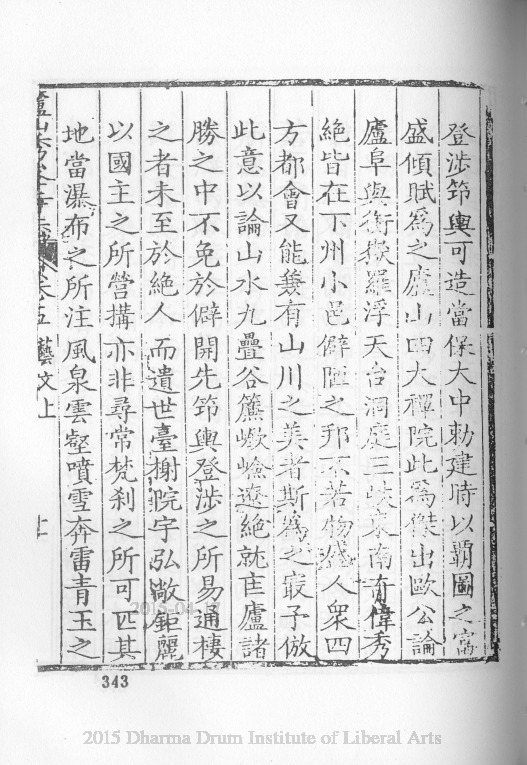 登涉笻輿可造當保大中勅建時以霸圖之富
盛傾賦為之廬山四大禪院此為傑出歐公論
廬阜與衡嶽羅浮天台洞庭三峽東南奇偉秀
絕皆在下州小邑僻陋之邦不若物盛人衆四
方都會又能兼有山川之美者斯為之最予倣
此意以論山水九疊谷簾巘嶮遼絕就匡廬諸
勝之中不免於僻開先笻輿登涉之所易通棲
之者未至於絕人而遺世臺榭院宇弘敞鉅麗
以國主之所營搆亦非尋常梵刹之所可匹其
地當瀑布之所注風泉雲壑噴雪奔雷青玉之
卷五 藝文上
343
2015-04
2015 Dharma Drum Institute of Liberal Arts